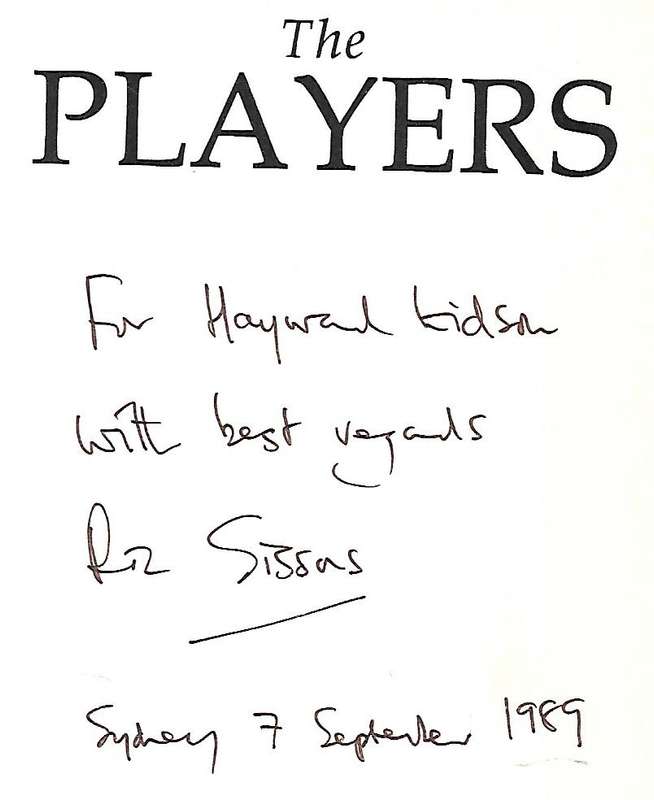 The
PLAYERS
For Hayward Kidson
with best regards
Ric Sissons
Sydney 7 September 1989